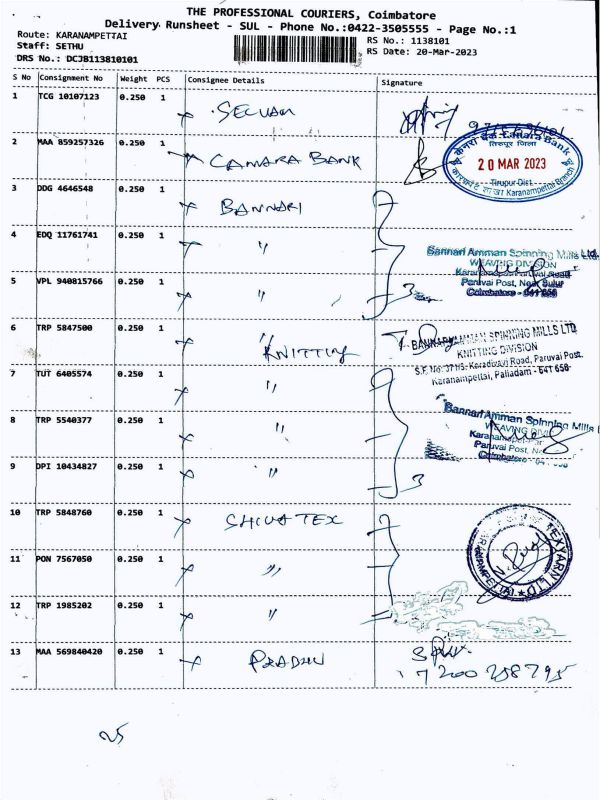 THE PROFESSIONAL COURIERS, Coimbatore
Delivery Runsheet - SUL - Phone No.:0422-3505555 - Page No.:1
Route: KARANAMPETTAI
Staff: SETHU
DRS No.: DCJB113810101
RS No.: 1138101
RS Date: 20-Mar-2023
S No Consignment No Weight PCS Consignee Details Signature
1 TCG 10107123 0.250 1 SELVAM
2 MAA 859257326 0.250 1 CANARA BANK
तिरुपुर जिला
20 MAR 2023
Tirupur Dist.
Karanampettai Branch
3 DDG 4646548 0.250 1 BANNARI
4 EDQ 11761741 0.250 1 "
Bannari Amman Spinning Mills Ltd.
WEAVING DIVISION
Paruvai Post, Near Sulur
Coimbatore - 641 658
5 VPL 940815766 0.250 1 " 3
6 TRP 5847500 0.250 1 " KNITTING
BANNARI AMMAN SPINNING MILLS LTD
KNITTING DIVISION
Karadivavi Road, Paruvai Post,
Karanampettai, Palladam - 641 658
7 TUT 6405574 0.250 1 "
8 TRP 5540377 0.250 1 "
Bannari Amman Spinning Mills
WEAVING
Paruvai Post,
Coimbatore
9 DPI 10434827 0.250 1 " 3
10 TRP 5848760 0.250 1 SHIVA TEX
TEXYARN LTD
11 PON 7567050 0.250 1 "
12 TRP 1985202 0.250 1 "
13 MAA 569840420 0.250 1 PRADHU
7200258795
25